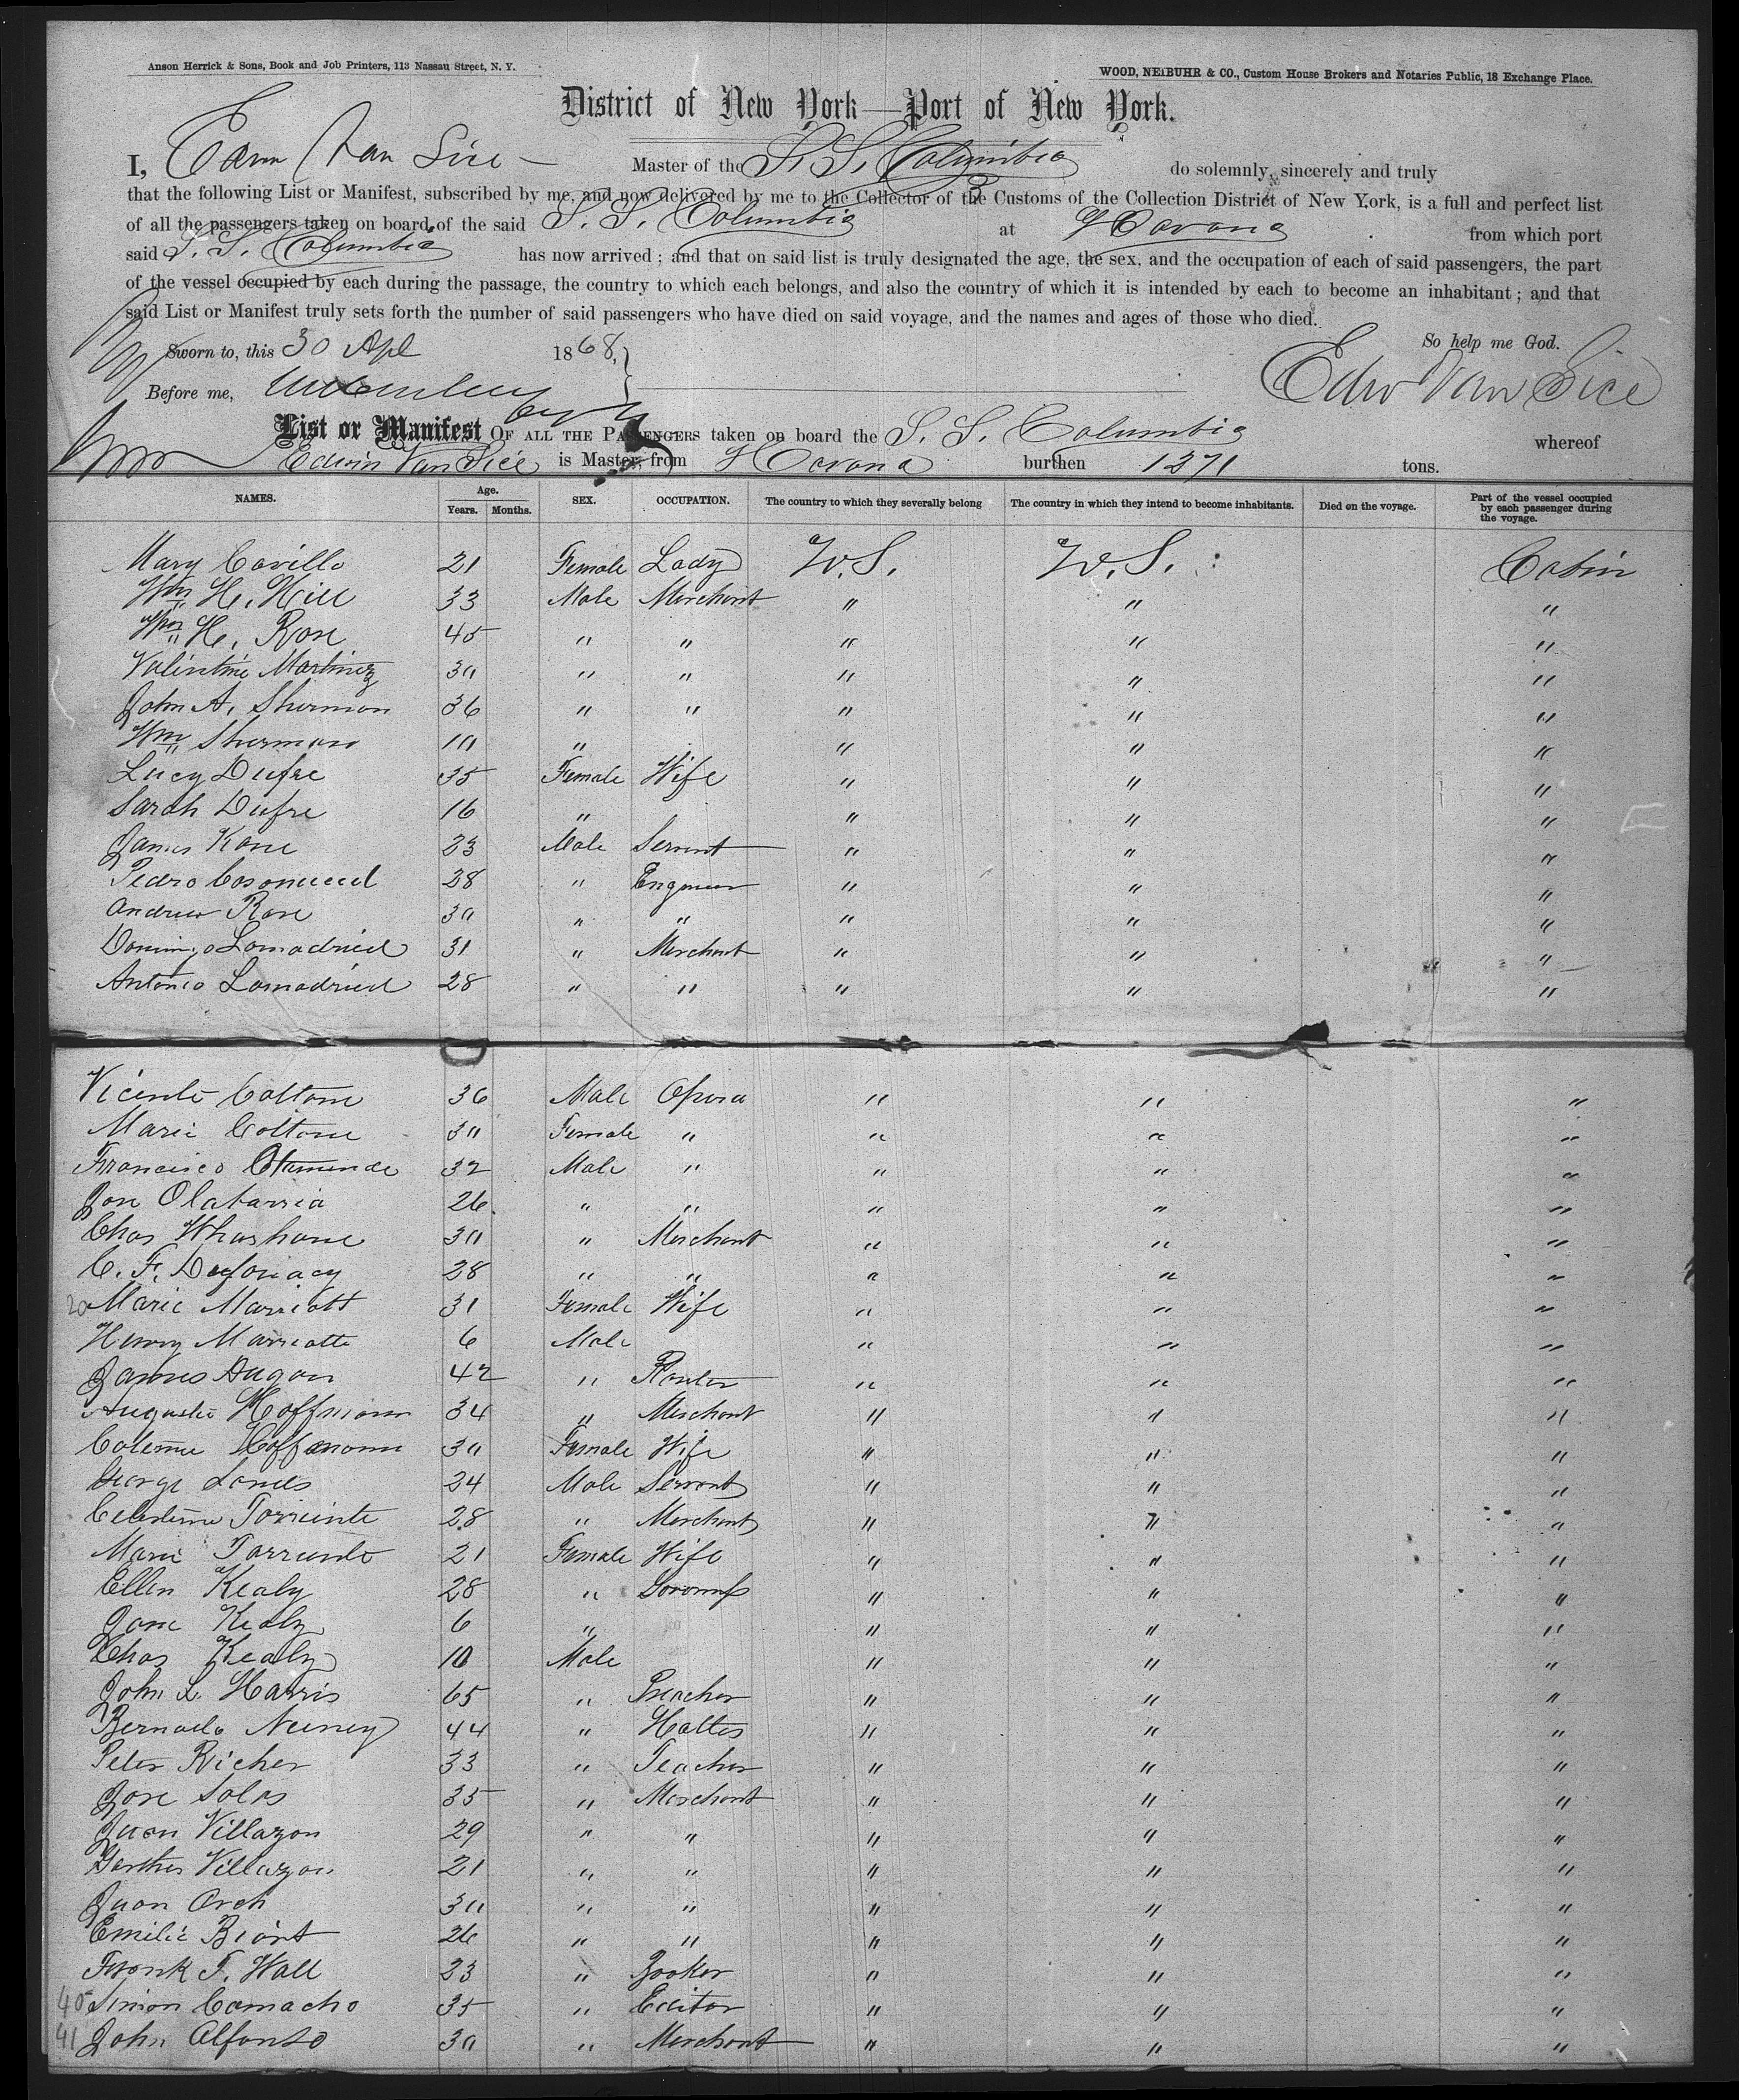 Anson Herrick & Sons, Book and Job Printers, 113 Nassau Street, N. Y.
WOOD, NEIBUHR & CO., Custom House Brokers and Notaries Public, 18 Exchange Place.
District of New York—Port of New York.
I, Edwn Van Sice — Master of the S. S. Columbia do solemnly, sincerely and truly
that the following List or Manifest, subscribed by me, and now delivered by me to the Collector of the Customs of the Collection District of New York, is a full and perfect list
of all the passengers taken on board of the said S. S. Columbia at Havana from which port
said S. S. Columbia has now arrived; and that on said list is truly designated the age, the sex, and the occupation of each of said passengers, the part
of the vessel occupied by each during the passage, the country to which each belongs, and also the country of which it is intended by each to become an inhabitant; and that
said List or Manifest truly sets forth the number of said passengers who have died on said voyage, and the names and ages of those who died.
So help me God.
Sworn to, this 30 Apl 1868,
Edw Van Sice
Before me,
List or Manifest OF ALL THE PASSENGERS taken on board the S. S. Columbia whereof
Edwin Van Sice is Master, from Havana burthen 1371 tons.
NAMES. Age. Years. Months. SEX. OCCUPATION. The country to which they severally belong The country in which they intend to become inhabitants. Died on the voyage. Part of the vessel occupied by each passenger during the voyage.
Mary Covillo 21 Female Lady U.S. U.S. Cabin
Wm H. Hill 33 Male Merchant " " "
Wm H. Rose 45 " " " " "
Valintine Martinez 30 " " " " "
John A. Sherman 36 " " " " "
Wm Sherman 10 " " " "
Lucy Dufre 35 Female Wife " " "
Sarah Dufre 16 " " " "
James Kane 23 Male Servant " " "
Pedro 28 " Engineer " " "
Andrew Rose 30 " " " " "
Domingo Lamadried 31 " Merchant " " "
Antonio Lamadried 28 " " " " "
Vicente Coltone 36 Male Opera " " "
Marie Coltone 30 Female " " " "
Francisco 32 Male " " " "
Jose Olabarria 26 " " " " "
Chas 30 " Merchant " " "
C. F. 28 " " " " "
20 Marie Marriott 31 Female Wife " " "
Henry Marriotte 6 Male " " "
James Dugan 42 " Planter " " "
Auguste Hoffmann 34 " Merchant " " "
Hoffmann 30 Female Wife " " "
George 24 Male Servant " " "
Celestime Torriente 28 " Merchant " " "
Marie Torriente 21 Female Wife " " "
Ellen Kealy 28 " " " "
Jane Kealy 6 " " " "
Chas Kealy 10 Male " " "
John L. Harris 65 " Preacher " " "
Bernardo 44 " Hatter " " "
Peter Richer 33 " Teacher " " "
Jose Salas 35 " Merchant " " "
Juan Villazon 29 " " " " "
Villazon 21 " " " " "
Juan Orch 30 " " " " "
Emilie 26 " " " " "
Frank T. Wall 23 " " " "
40 Simon Camacho 35 " Editor " " "
41 John Alfonso 30 " Merchant " " "